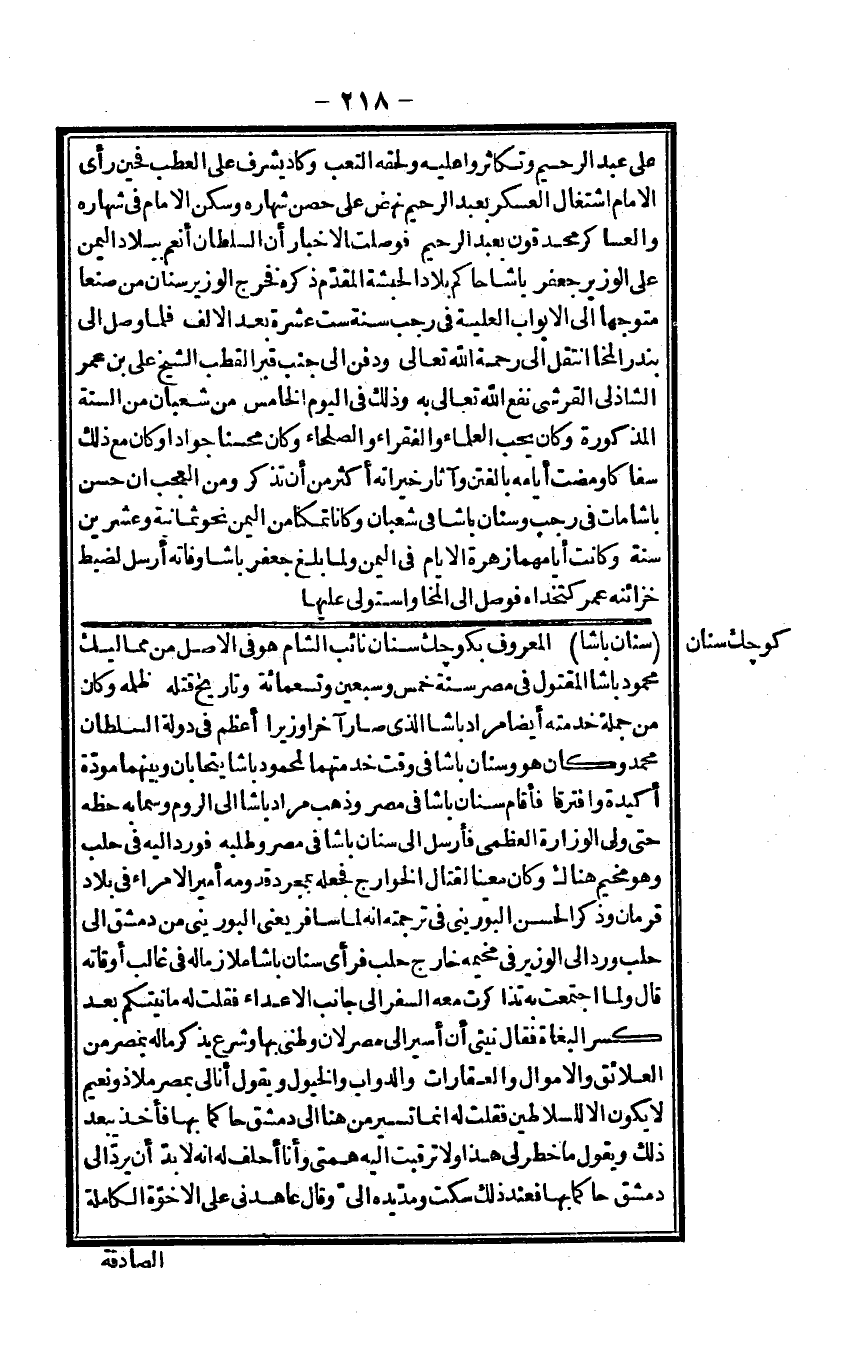 - ٢١٨ -
على عبد الرحيم وتكاثروا عليه ولحقه التعب وكاد يشرف على العطب فحين رأى
الامام اشتغال العسكر بعبد الرحيم نهض على حصن شهاره وسكن الامام فى شهاره
والعساكر محدقون بعبد الرحيم فوصلت الاخبار أن السلطان أنعم ببلاد اليمن
على الوزير جعفر باشا حاكم بلاد الحبشة المقدّم ذكره فخرج الوزير سنان من صنعا
متوجها الى الابواب العلية فى رجب سنة ست عشرة بعد الالف فلما وصل الى
بندر المخا انتقل الى رحمة الله تعالى ودفن الى جنب قبر القطب الشيخ على بن عمر
الشاذلى القرشى نفع الله تعالى به وذلك فى اليوم الخامس من شعبان من السنة
المذكورة وكان يحب العلماء والفقراء والصلحاء وكان محسنا جوادا وكان مع ذلك
سفاكا ومضت أيامه بالفتن وآثار خيراته أكثر من أن تذكر ومن العجب ان حسن
باشا مات فى رجب وسنان باشا فى شعبان وكانا تمكنا من اليمن نحو ثمانية وعشرين
سنة وكانت أيامهما زهرة الايام فى اليمن ولما بلغ جعفر باشا وفاته أرسل لضبط
خزائنه عمر كتخداه فوصل الى المخا واستولى عليها
كوجك سنان
(سنان باشا) المعروف بكوجك سنان نائب الشام هو فى الاصل من مماليك
محمود باشا المقتول فى مصر سنة خمس وسبعين وتسعمائة وتاريخ قتله ظلمه وكان
من جملة خدمته أيضا مراد باشا الذى صار آخرا وزيرا أعظم فى دولة السلطان
محمد وكان هو وسنان باشا فى وقت خدمتهما لمحمود باشا يتحابان وبينهما مودّة
أكيدة وافترقا فأقام سنان باشا فى مصر وذهب مراد باشا الى الروم وسما به حظه
حتى ولى الوزارة العظمى فأرسل الى سنان باشا فى مصر وطلبه فورد اليه فى حلب
وهو مخيم هناك وكان معينا لقتال الخوارج فجعله بمجرد قدومه أمير الامراء فى بلاد
قرمان وذكر الحسن البورينى فى ترجمته انه لما سافر يعنى البورينى من دمشق الى
حلب ورد الى الوزير فى مخيمه خارج حلب فرأى سنان باشا ملازما له فى غالب أوقاته
قال ولما اجتمعت به تذاكرت معه السفر الى جانب الاعداء فقلت له ما نيتكم بعد
كسر البغاة فقال نيتى أن أسير الى مصر لان وطنى بها وشرع يذكر ماله بمصر من
العلائق والاموال والعقارات والدواب والخيول ويقول أنالى بمصر ملاذ ونعيم
لا يكون الا للسلاطين فقلت له انما تسير من هنا الى دمشق حاكما بها فأخذ يبعد
ذلك ويقول ما خطر لى هذا ولا ترقبت اليه همتى وأنا أحلف له انه لا بدّ أن يردّ الى
دمشق حاكما بها فعند ذلك سكت ومدّ يده الىّ وقال عاهدنى على الاخوّة الكاملة
الصادقة